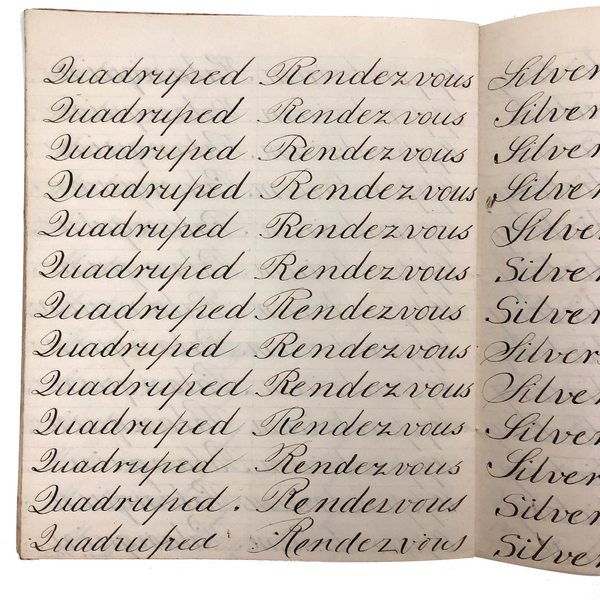 Quadruped Rendezvous
Quadruped Rendezvous
Quadruped Rendezvous
Quadruped Rendezvous
Quadruped Rendezvous
Quadruped Rendezvous
Quadruped Rendezvous
Quadruped Rendezvous
Quadruped Rendezvous
Quadruped Rendezvous
Quadruped Rendezvous
Quadruped. Rendezvous
Quadruped Rendezvous
Silver
Silver
Silver
Silver
Silve
Silver
Silver
Silvers
Silver
Silver
Silver
Silver
Silver